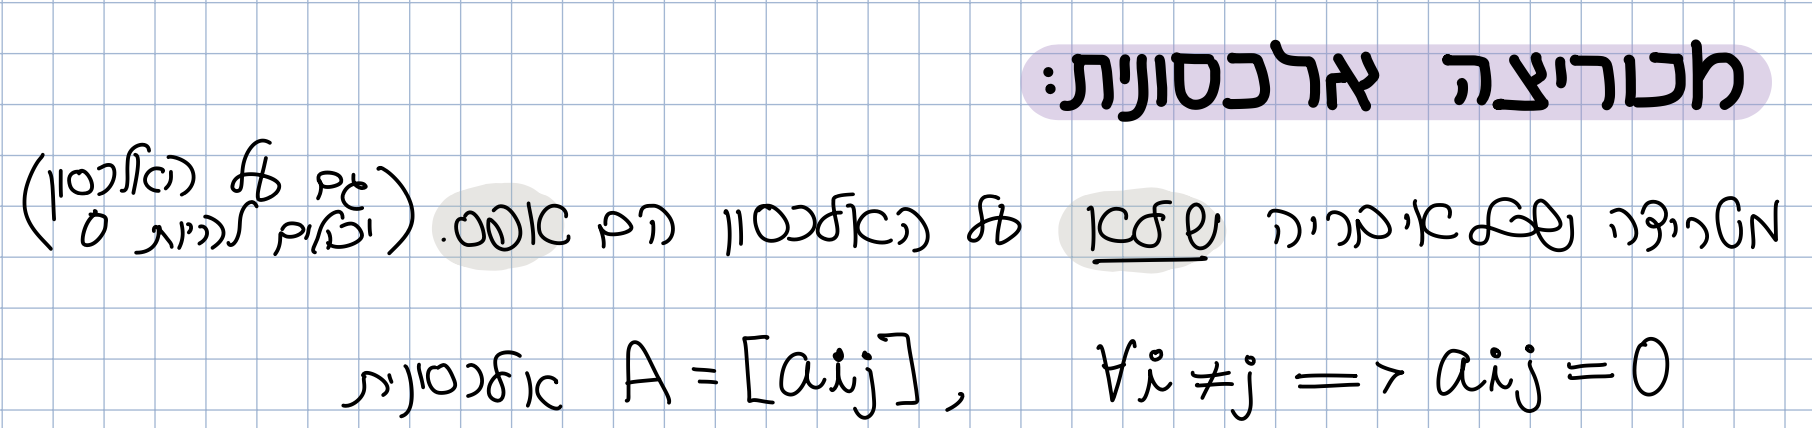 מטריצה אלכסונית:
מטריצה שכל איבריה שלא על האלכסון הם אפס. (גם על האלכסון יכולים להיות 0)
אלכסונית A = [aij] , ∀i ≠ j => aij = 0